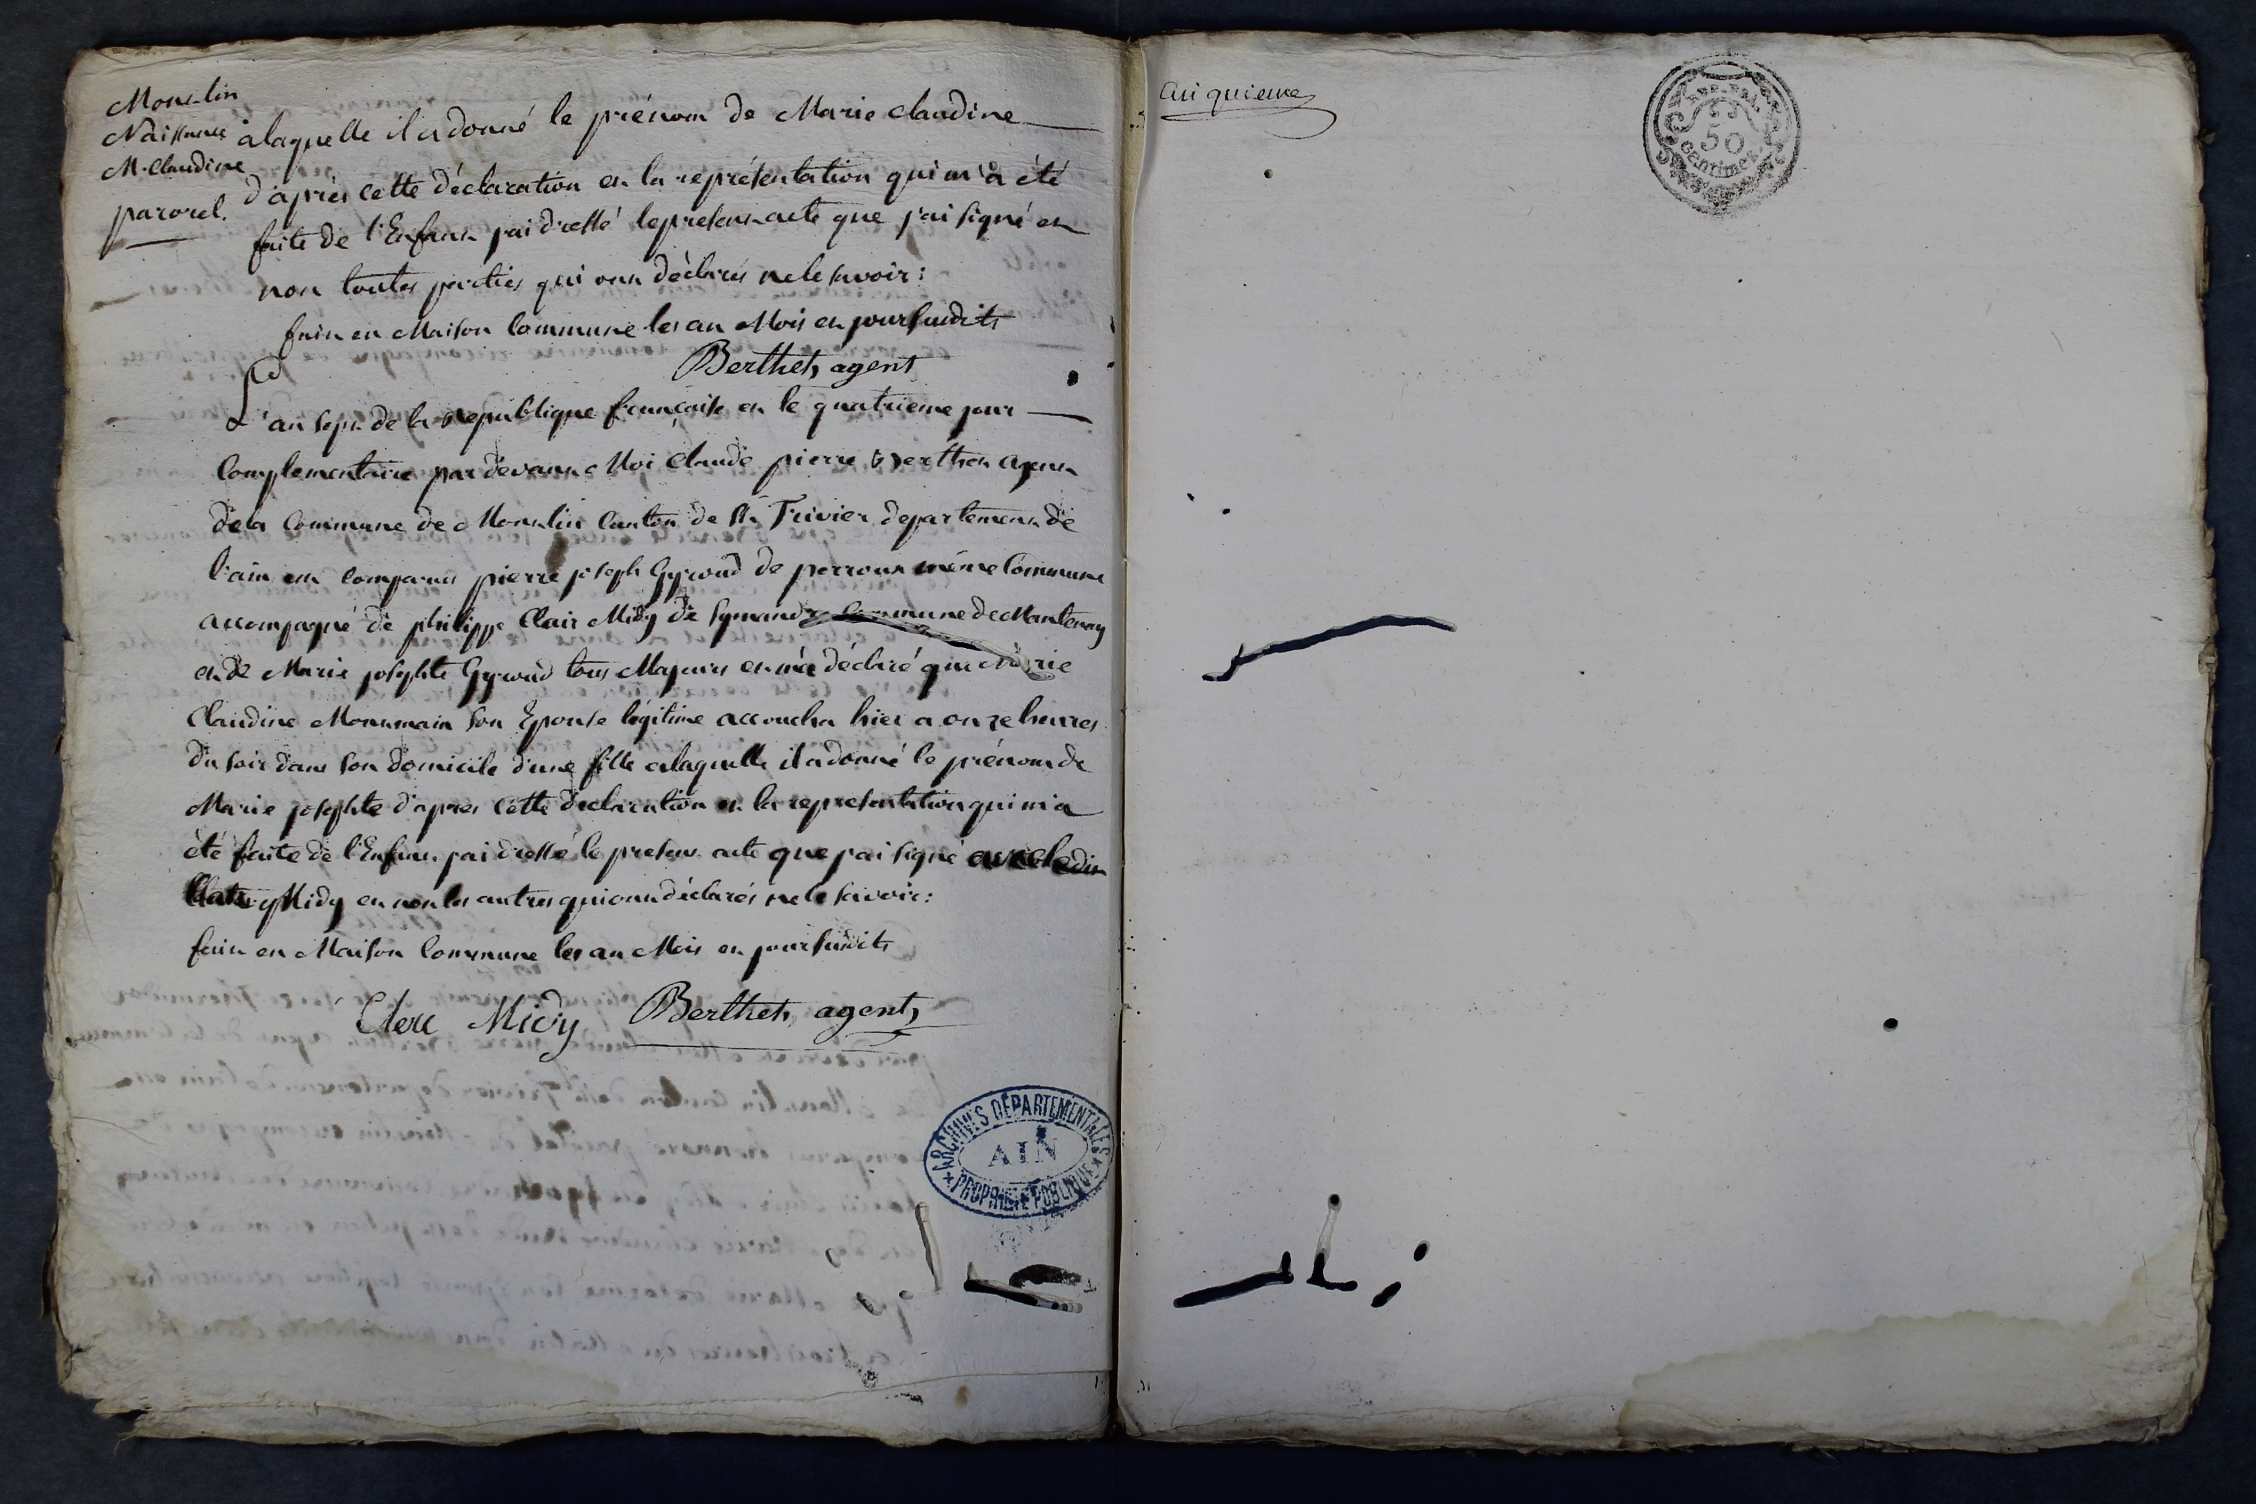 Montlin
Naissance
M. Claudine
parorel.
a laquelle il a donné le prénom de Marie Claudine
d'après cette déclaration et la représentation qui m'a été
faite de l'Enfant j'ai dressé le présent acte que j'ai signé et
non toutes parties qui ont déclarés ne le savoir :
fait en Maison Commune les an Mois et jour susdits
Berthet, agent
L'an sept de la republique française et le quatrieme jour
Complementaire par devant Moi Claude pierre Berthet agent
de la Commune de Montlin Canton de St Trivier departement de
l'ain est Comparus pierre joseph Gyroud de perroux même Commune
accompagné de philippe Clair Midy de Symandre Commune de Mantenay
et de Marie josephte Gyroud tous Majeurs et m'a déclaré que Marie
Claudine Monnmain son Epouse légitime accoucha hier a onze heures
du soir dans son domicile d'une fille a laquelle il a donné le prénom de
Marie josephte d'après cette déclaration et la representation qui m'a
été faite de l'Enfant j'ai dressé le present acte que j'ai signé avec le dit
Midy et non les autres qui ont déclarés ne le savoir :
fait en Maison Commune les an Mois et jour susdits
Clerc Midy Berthet, agent,
ARCHIVES DÉPARTEMENTALES
AIN
PROPRIÉTÉ PUBLIQUE
Cinquieme
50
centimes